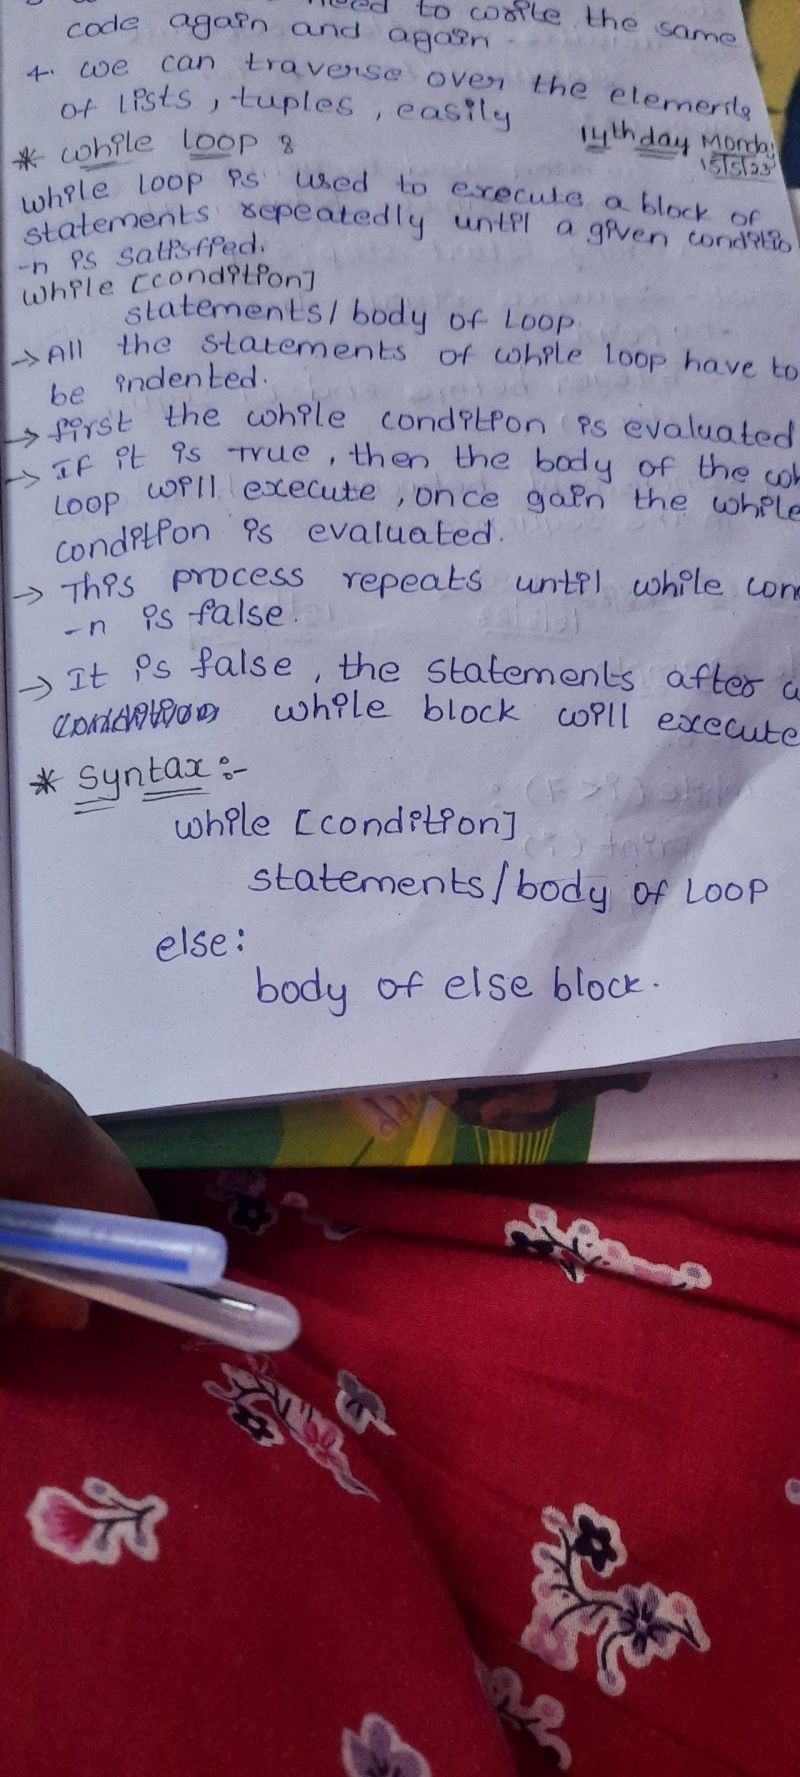 need to write the same
code again and again.
4. we can traverse over the elements
of Lists, tuples, easily
14th day Monday
15/5/23
* while loop :
while loop is used to execute a block of
statements repeatedly until a given conditio
-n is satisfied.
while [condition]
statements/body of Loop.
→ All the statements of while loop have to
be indented.
→ first the while condition is evaluated
→ If it is True, then the body of the wh
Loop will execute, once gain the while
condition is evaluated.
→ This process repeats until while con
-n is false.
→ It is false, the statements after
while block will execute
* Syntax :-
while [condition]
statements/body of Loop
else:
body of else block.